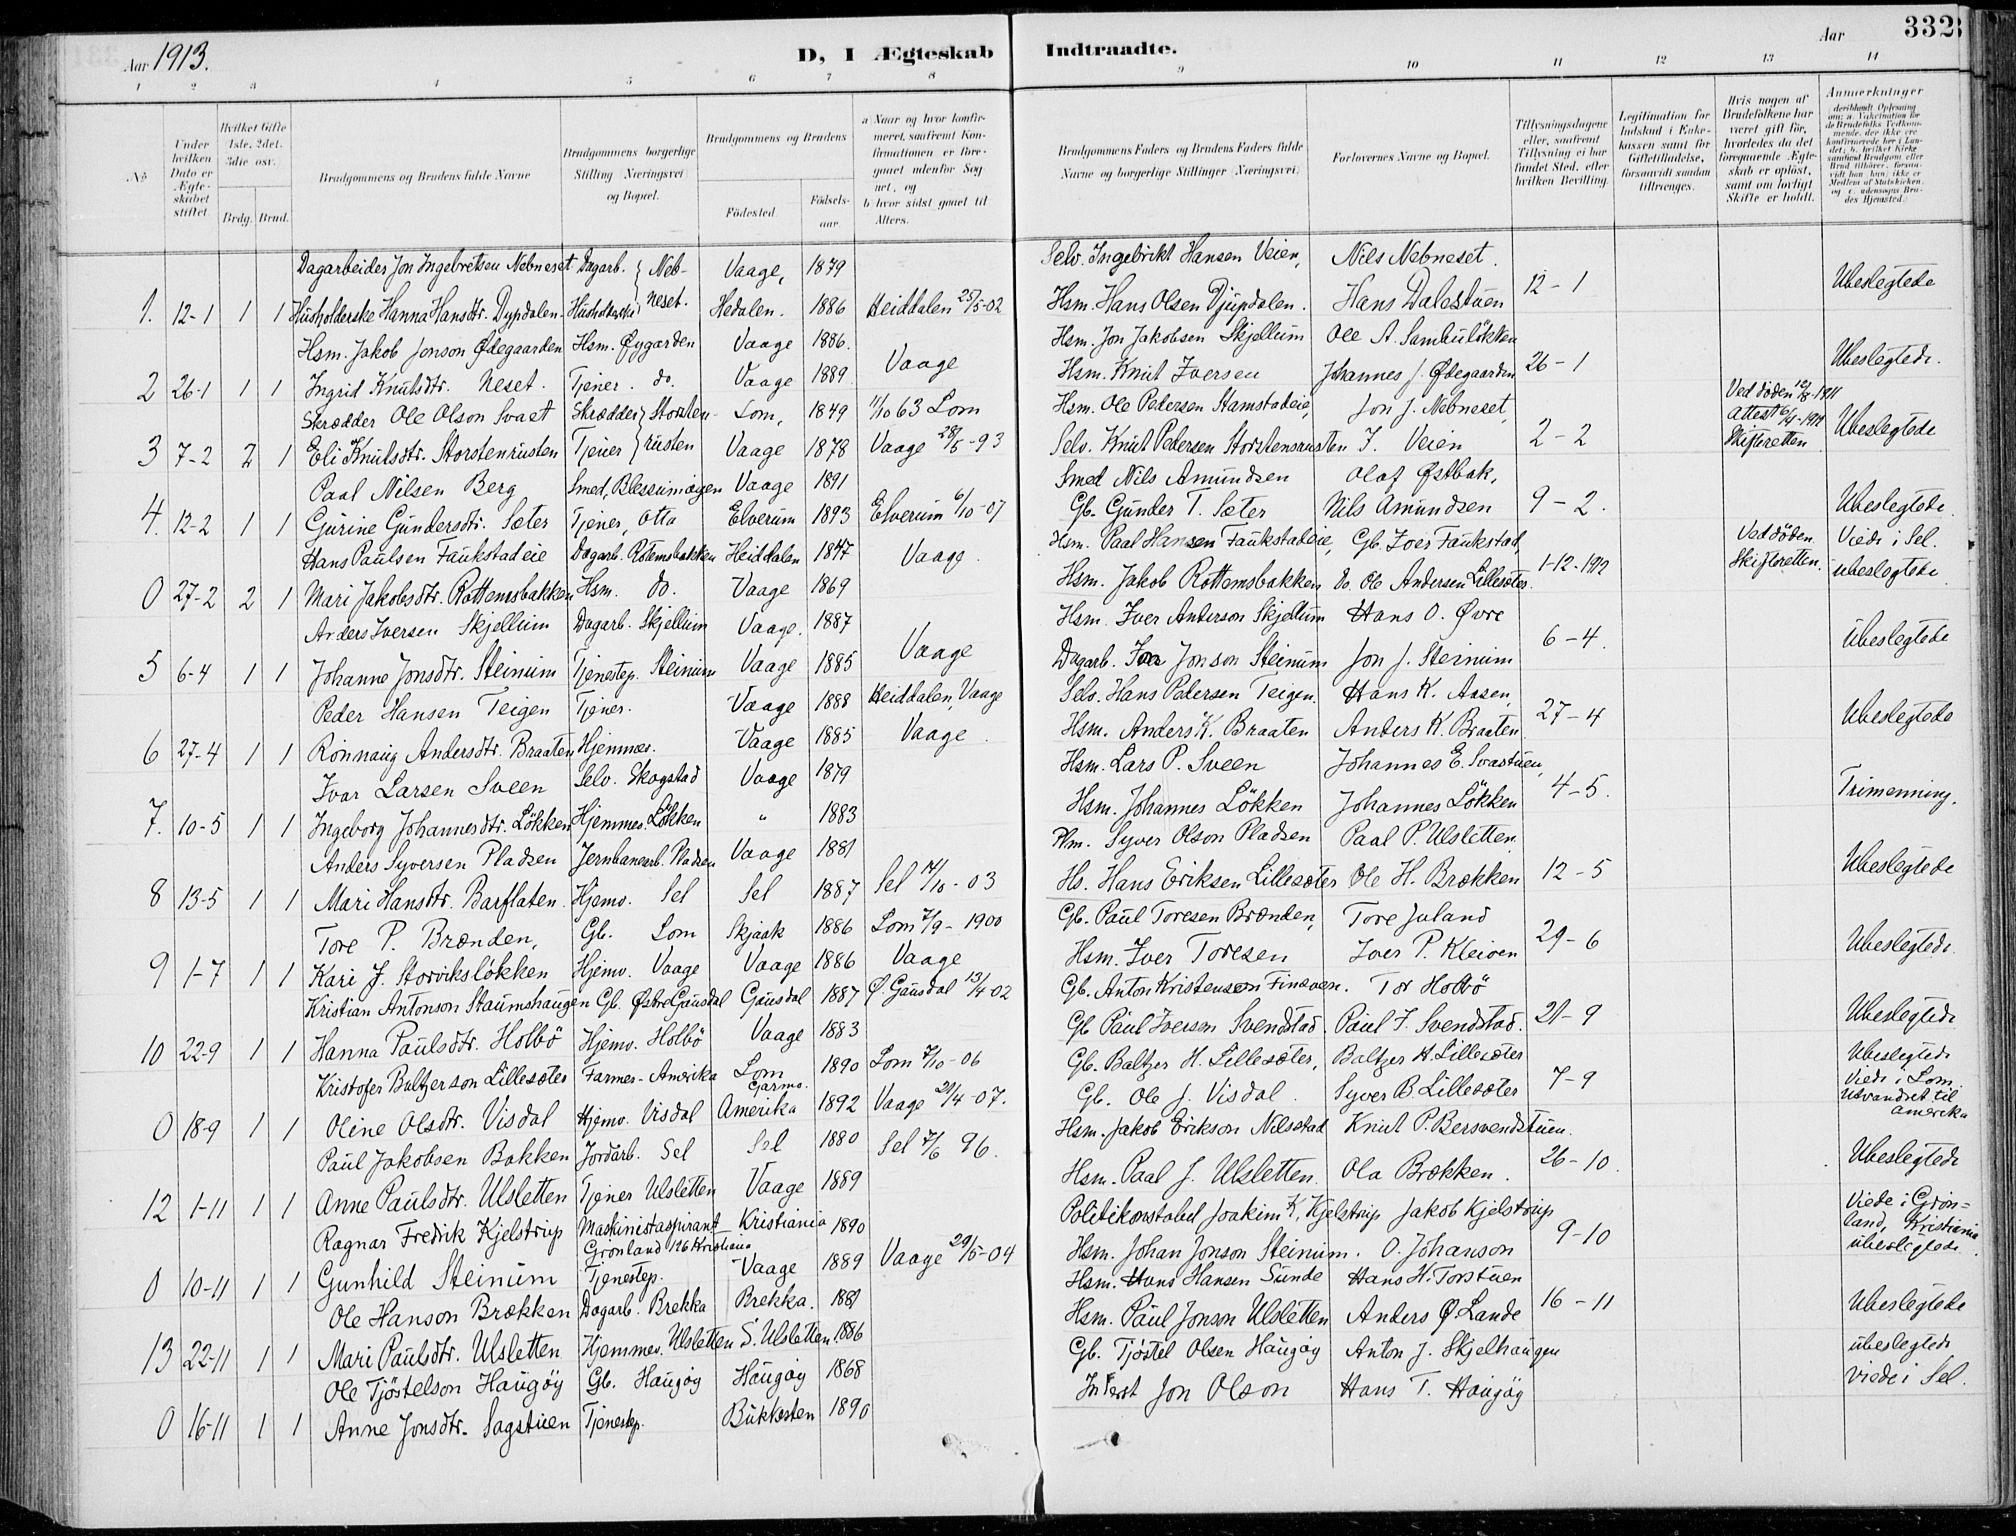 Aar 1913.
D, I Ægteskab Indtraadte.
Aar
332
1 2 3 4 5 6 7 8 9 10 11 12 13 14
No
Under hvilken Dato er Ægteskabet stiftet
Hvilket Gifte 1ste, 2det, 3die osv.
Brdg. Brud.
Brudgommens og Brudens fulde Navne
Brudgommens borgerlige Stilling Næringsvei og Bopæl.
Brudgommens og Brudens
Födested.
Födsels-aar.
a Naar og hvor konfirmeret, saafremt Konfirmationen er foregaaet udenfor Sognet, og
b hvor sidst gaaet til Alters.
Brudgommens Faders og Brudens Faders fulde Navne og borgerlige Stillinger (Næringsvei)
Forlovernes Navne og Bopæl.
Tillysningsdagene eller, saafremt Tillysning ei har fundet Sted, efter hvilken Bevilling.
Legitimation for Indskud i Enkekassen samt for Giftetilladelse, forsaavidt saadan tiltrænges.
Hvis nogen af Brudefolkene har været gift før, hvorledes da det foregaaende Ægteskab er opløst, samt om lovligt Skifte er holdt.
Anmerkninger
Dagarbeider Jon Ingebretsen Nebneset Dagarb. Neb- Vaage, 1879 Selv. Ingebrikt Hansen Veien, Nils Nebneset.
1. 12-1 1 1 Husholderske Hanna Hansdtr. Dypdalen. Husholderske neset. Hedalen. 1886 Heiddalen 25/5-02 Hsm. Hans Olsen Djupdalen. Hans Dalestuen 12-1 Ubeslegtede
Hsm. Jakob Jonson Ødegaarden Hsm. Øygarden Vaage 1886. Hsm. Jon Jakobsen Skjellum Ole A. Sambuløkken
2 26-1 1 1 Ingrid Knutsdtr. Neset. Tjener. do. Vaage 1889 Vaage Hsm. Knut Iversen Johannes J. Ødegaarden 26-1 Ubeslegtede.
Skrædder Ole Olson Svaet Skrædder Storsten- Lom, 1849 11/10 63 Lom Hsm. Ole Pedersen Stamstadeie, Jon J. Nebneset, Ved døden 10/8-1911
3 7-2 2 1 Eli Knutsdtr. Storstenrusten Tjener rusten Vaage 1878 Vaage 28/5-93 Selv. Knut Pedersen Storstensrusten I. Veien 2-2 Attest 6/1-1912 Skifteretten Ubeslegtede
Paal Nilsen Berg Smed, Blessumøien Vaage 1891 Smed Nils Amundsen Olaf Østbak,
4. 12-2 1 1 Gurine Gundersdtr. Sæter Tjener, Otta Elverum 1893 Elverum 6/10-07 Gb. Gunder T. Sæter Nils Amundsen 9-2. Ubeslegtede
Hans Paulsen Faukstadeie Dagarb. Rotemsbakken Heiddalen 1847 Vaage. Hsm. Paal Hansen Faukstadeie, Gb. Iver Faukstad, Ved døden Viede i Sel.
0 27-2 2 1 Mari Jakobsdtr. Rottemsbakken Hsm. do. Vaage 1869 Hsm. Jakob Rottemsbakken do. Ole Andersen Lillesæter. 1-12-1912 Skifteretten. ubeslegtede
Anders Iversen Skjellum Dagarb. Skjellum Vaage. 1887 Hsm. Iver Anderson Skjellum Hans O. Øvre
5 6-4 1 1 Johanne Jonsdtr. Steinum Tjenestep. Steinum Vaage 1885 Vaage Dagarb. Jonson Steinum Jon J. Steinum 6-4. ubeslegtede
Peder Hansen Teigen Tjener. Vaage 1888 Heiddalen, Vaage Selv. Hans Pedersen Teigen. Hans K. Aasen,
6 27-4 1 1 Rönnaug Andersdtr. Braaten Hjemmev. Vaage 1885 Vaage. Hsm. Anders K. Braaten Anders K. Braaten 27-4 Ubeslegtede
Ivar Larsen Sveen Selv. Skogstad Vaage 1879 Hsm. Lars P. Sveen Johannes E. Svastuen,
7. 10-5 1 1 Ingeborg Johannesdtr. Lökken Hjemmev. Lökken " 1883 Hsm. Johannes Lökken Johannes Lökken 4-5. Trimenning.
Anders Syversen Pladsen Jernbanearb. Pladsen Vaage 1881 Plm. Syver Olson Pladsen Paal P. Ulsletten.
8 13-5 1 1 Mari Hansdtr. Barflaten. Hjemv. Sel Sel 1887 Sel 14/10-03 Hs. Hans Eriksen Lillesæter Ole H. Brækken 12-5 Ubeslegtede
Tore P. Brænden, Gb. Lom Skjaak 1886 Lom 7/9-1900 Gb. Paul Toresen Brænden, Tore Juland
9 1-7 1 1 Kari J. Storvikslökken Hjemv. Vaage Vaage 1886 Vaage Hsm. Iver Toresen Iver P. Kleiven 29-6 Ubeslegtede
Kristian Antonson Staumshaugen Gb. Østre Gausdal Gausdal 1887 Ø. Gausdal 13/4-02 Gb. Anton Kristensen Finsveen. Tor Holbö
10 22-9 1 1 Hanna Paulsdtr. Holbö Hjemv. Holbö Vaage 1883 Gb Paul Iverson Svendstad. Paul I. Svendstad. 21-9 Ubeslegtede
Kristofer Baltzerson Lillesæter Farmer-Amerika Lom Garmo. 1890 Lom 7/10-06 Gb. Baltzer H. Lillesæter, Baltzer H. Lillesæter Ubeslegtede
0 18-9 1 1 Oline Olsdtr. Visdal Hjemv. Visdal Amerika 1892 Vaage 21/4-07. Gb. Ole J. Visdal. Syver B. Lillesæter 7-9 Viede i Lom. Udvandret til Amerika
Paul Jakobsen Bakken Jordarb. Sel Sel 1880 Sel 7/6 96. Hsm. Jakob Erikson Nilsstad Knut P. Bersvendstuen.
12 1-11 1 1 Anne Paulsdtr. Ulsletten Tjener Ulsletten Vaage 1889 Hsm. Paal J. Ulsletten. Ola Brækken. 26-10. Ubeslegtede
Ragnar Fredrik Kjelstrup Maskinistaspirant Grönland 126 Kristiania Kristiania 1890 Politikonstabel Joakim K. Kjelstrup Jakob Kjelstrup Viede i Grön-
0 10-11 1 1 Gunhild Steinum Tjenestep. Vaage 1889 Vaage 29/5-04 Hsm. Johan Jonson Steinum. O. Johanson 9-10 land, Kristiania ubeslegtede.
Ole Hanson Brækken Dagarb. Brekka Brekka. 1881 Hsm. Hans Hansen Sunde Hans H. Torstuen
13 22-11 1 1 Mari Paulsdtr. Ulsletten Hjemmev. Ulsletten S. Ulsletten. 1886 Hsm. Paul Jonson Ulsletten Anders Ø. Lande 16-11 Ubeslegtede
Ole Tjöstelson Haugöy Gb. Haugöy Haugöy 1868 Gb. Tjöstel Olsen Haugöy Anton J. Skjelhaugen ubeslegtede
0 16-11 1 1 Anne Jonsdtr. Sagstuen Tjenestep. Bukkesten 1890 Jon Olson Hans T. Haugöy viede i Sel.